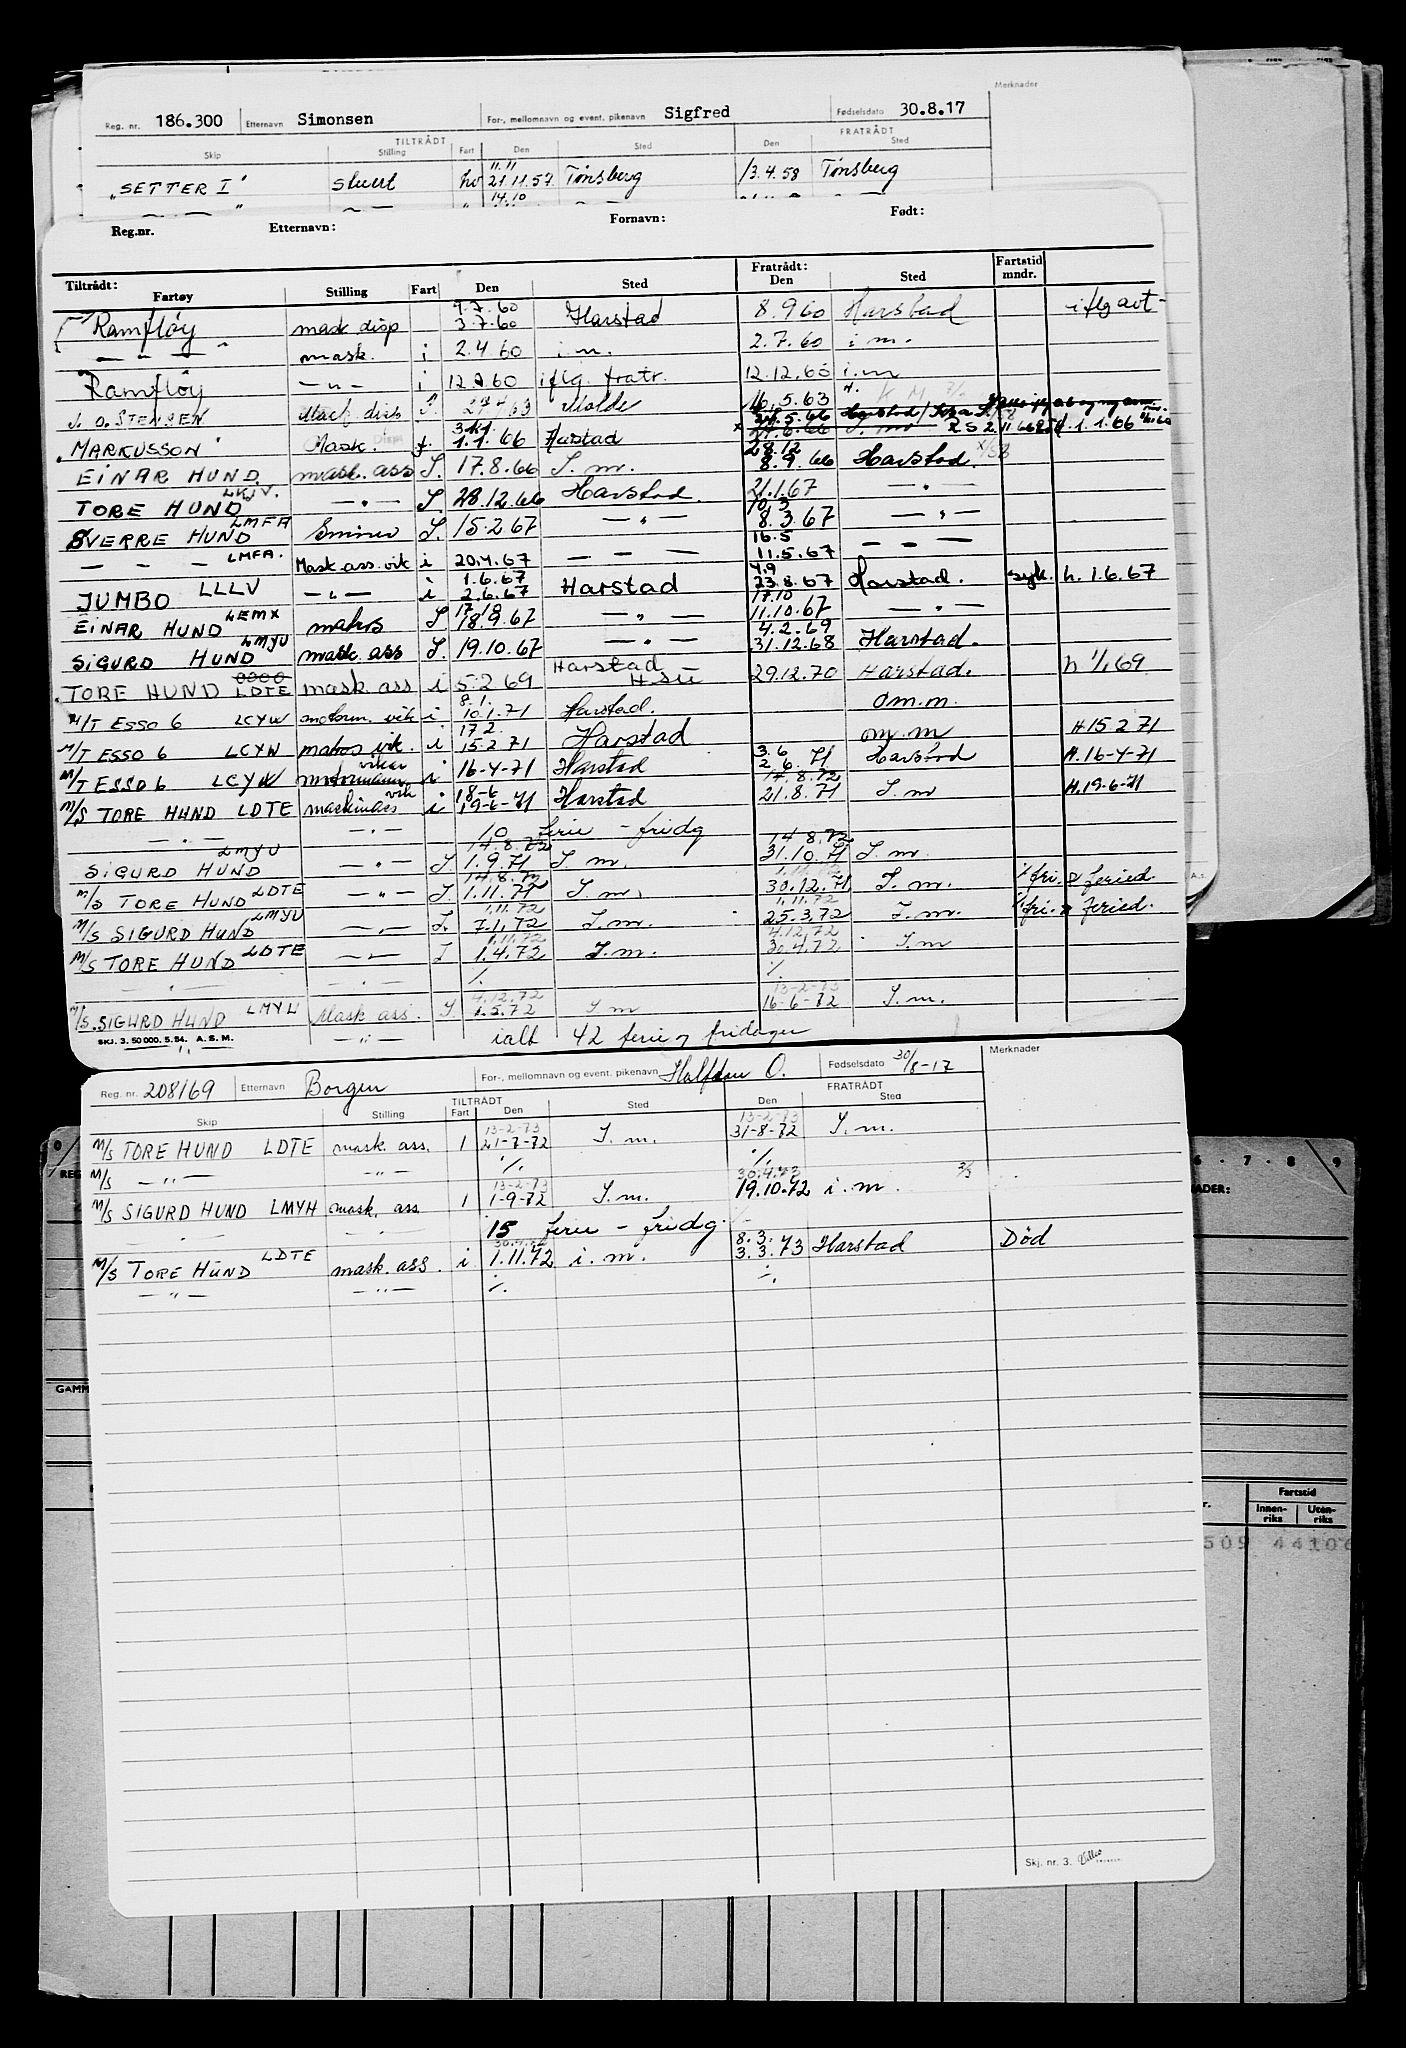 Merknader
Reg. nr. 186.300 Etternavn Simonsen For-, mellomnavn og event. pikenavn Sigfred Fødselsdato 30.8.17
TILTRÅDT FRATRÅDT
Skip Stilling Fart Den Sted Den Sted
11.11
"SETTER I" stuert hv 21.11.57 Tønsberg 13.4.58 Tønsberg
14.10
Reg.nr. Etternavn: Fornavn: Født:
Tiltrådt: Fratrådt: Fartstid
Fartøy Stilling Fart Den Sted Den Sted mndr.
9.7.60
Ramfløy mask disp 3.7.60 Harstad 8.9.60 Harstad iflg avt-
— " — mask. i 2.4.60 i.m. 2.7.60 i m.
Ramfløy — " — i iflg. fratr. i.m
J. O. STENSEN Molde 16.5.63
"MARKUSSON" Mask. 1.1.66 Harstad
28.12
EINAR HUND mask. ass S. 17.8.66 I. m. 8.9.66 Harstad.
TORE HUND — " — I. 28.12.66 Harstad. 21.1.67 — " —
10.3
SVERRE HUND LMFA I. 15.2.67 — " — 8.3.67 — " —
16.5
— — — LMFA. Mask ass. vik i 20.4.67 — — — 11.5.67 — — —
1.6.67 4.9
JUMBO LLLV — " — i 2.6.67 Harstad 23.8.67 Harstad. syk. h. 1.6.67
17.10
EINAR HUND LEMX matros I. 18.9.67 — " — 11.10.67 — " —
4.2.69
SIGURD HUND LMYU mask. ass I. 19.10.67 — " — 31.12.68 Harstad.
TORE HUND LDTE mask. ass i 5.2 69 Harstad 29.12.70 Harstad. h 1/1 69
8.1.
M/T ESSO 6 LCYW motorm. vik i 10.1.71 Harstad. om.m.
17.2
M/T ESSO 6 LCYW matros vik. i 15.2 71 Harstad om.m H 15 2 71
vikar 3.6
M/T ESSO 6 LCYW motormann i 16-4-71 Harstad 2.6.71 Harstad H. 16-4-71
vik 18-6 17.8.72
M/S TORE HUND LDTE maskinass i 19-6-71 Harstad 21.8.71 I. m H. 19-6-71
— " — — " — 10 ferie - fridg
14.8.72 14 8.72
SIGURD HUND LMYU — " — I. 1.9.71 I m. 31.10.71 I. m.
14.8.72
M/S TORE HUND LDTE — " — I. 1.11.71 I. m. 30.12.71 I. m. fri. & feried.
1.11.72 1.11.72
M/S SIGURD HUND LMYU — " — I. 7.1.72 I.m. 25.3.72 I.m. fri. & feried.
1.11.72 4.12.72
M/S TORE HUND LDTE — " — I 1.4.72 I.m. 30.4.72 I m
— " — — " — ·/. ·/.
4.12.72 13-2-73
M/S SIGURD HUND LMYU Mask ass. I. 1.5.72 I m 16-6-72 I.m.
SKJ. 3. 50 000. 5. 54. A. S. M. — " — ialt 42 ferie og fridager
Merknader
Reg. nr. 208169 Etternavn Borgen For-, mellomnavn og event. pikenavn Halfdan O. Fødselsdato 30/8-17
TILTRÅDT FRATRÅDT
Skip Stilling Fart Den Sted Den Sted
13-2-73 13-2-73
M/S TORE HUND LDTE mask. ass. I 21-7-72 I. m. 31-8-72 I. m.
M/S — " — — " — ·/. ·/.
13-2-73 30.4.73
M/S SIGURD HUND LMYH mask. ass I 1-9-72 I.m. 19.10.72 i.m.
15 ferie - fridg.
8.3.
M/S TORE HUND LDTE mask. ass. i 1.11.72 i. m. 3.3.73 Harstad Død
— " — — " — ·/. ·/.
6 · 7 · 8 · 9
GAMM
Fartstid
Innen- Uten-
riks riks
509 44106
Skj. nr. 3.